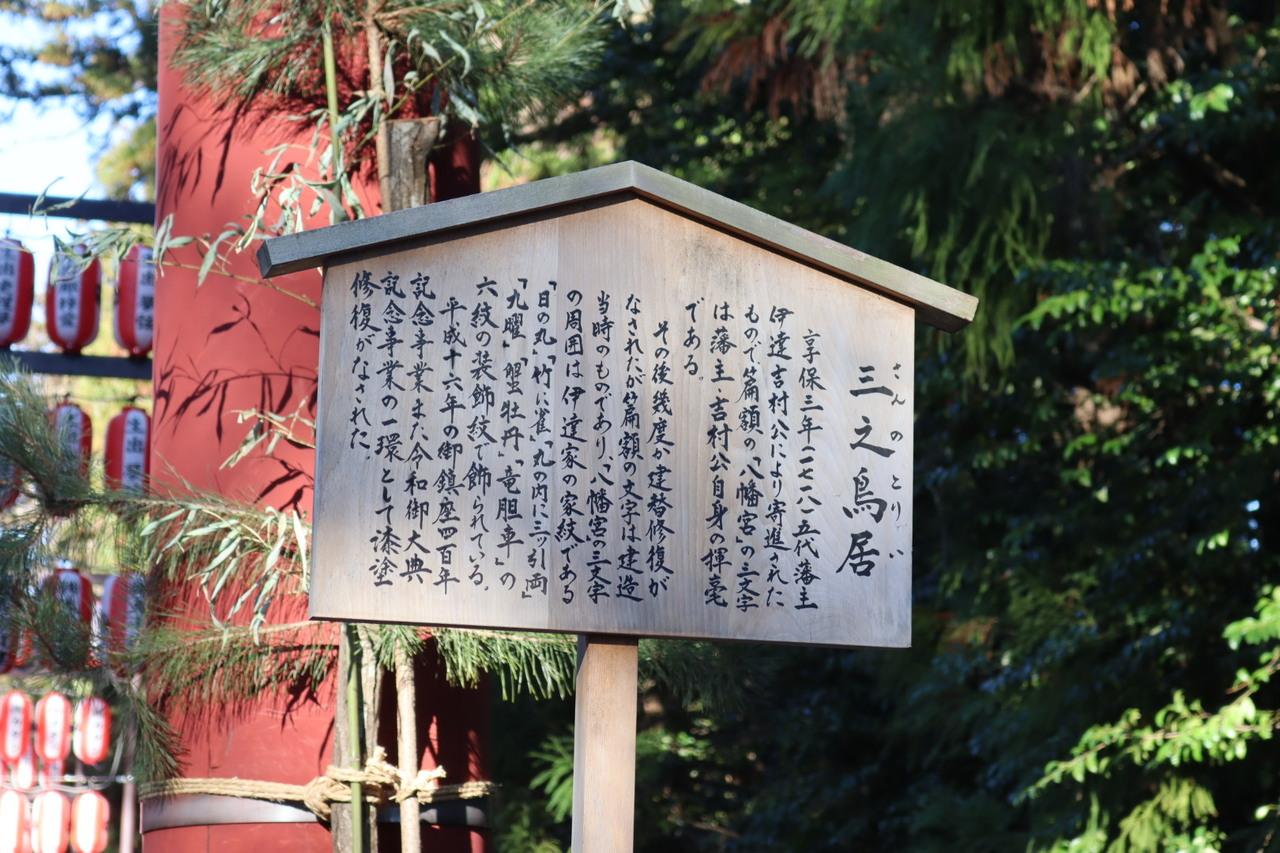 さんのとりい
三之鳥居
享保三年(一七一八)五代藩主
伊達吉村公により寄進された
もので篇額の「八幡宮」の三文字
は藩主吉村公自身の揮毫
である。
その後幾度か建替修復が
なされたが篇額の文字は建造
当時のものであり、「八幡宮の三文字
の周囲は伊達家の家紋である
「日の丸」「竹に雀」「丸の内に三ッ引両」
「九曜」「蟹牡丹」「竜胆車」の
六紋の装飾紋で飾られている。
平成十六年の御鎮座四百年
記念事業また令和御大典
記念事業の一環として漆塗
修復がなされた